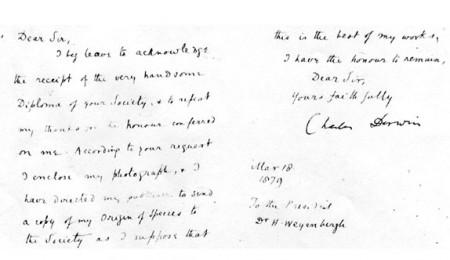 Dear Sir,
I beg leave to acknowledge
the receipt of the very handsome
Diploma of your Society, & to repeat
my thanks for the honour conferred
on me. According to your request
I enclose my photograph, & I
have directed my publisher to send
a copy of my Origin of Species to
the Society as I suppose that
this is the best of my works,
I have the honour to remain,
Dear Sir,
Yours faithfully
Charles Darwin
Mar 18
1879
To the President
Dr H. Weyenbergh